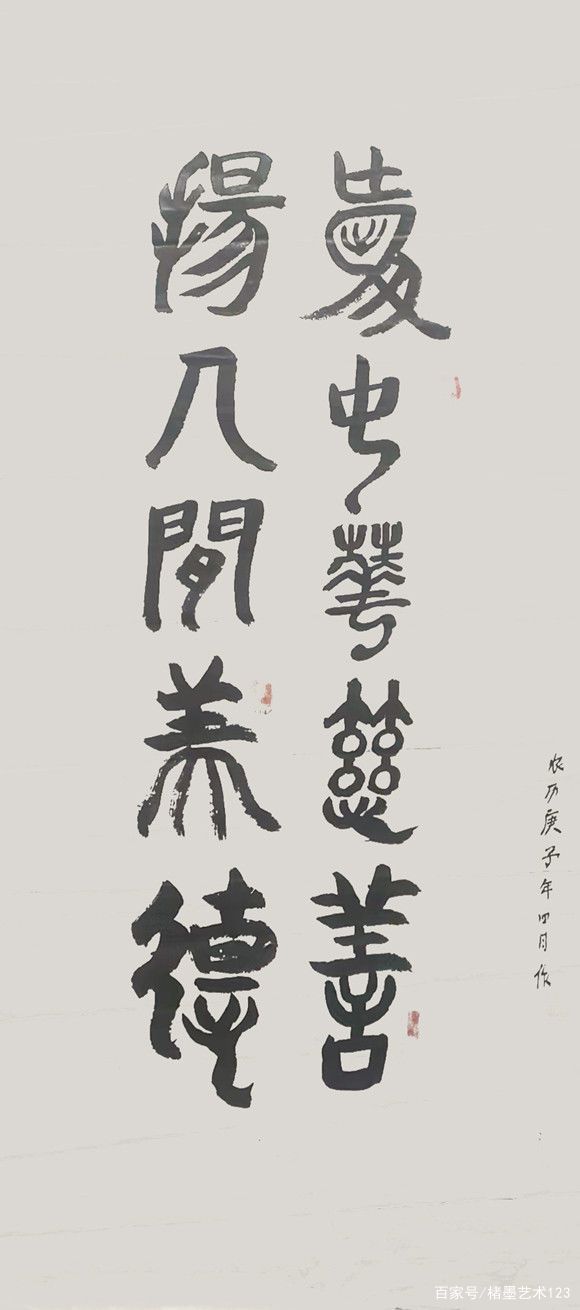 农历庚子年四月作
愛中華慈善
揚人間美德
百家号/楮墨艺术123